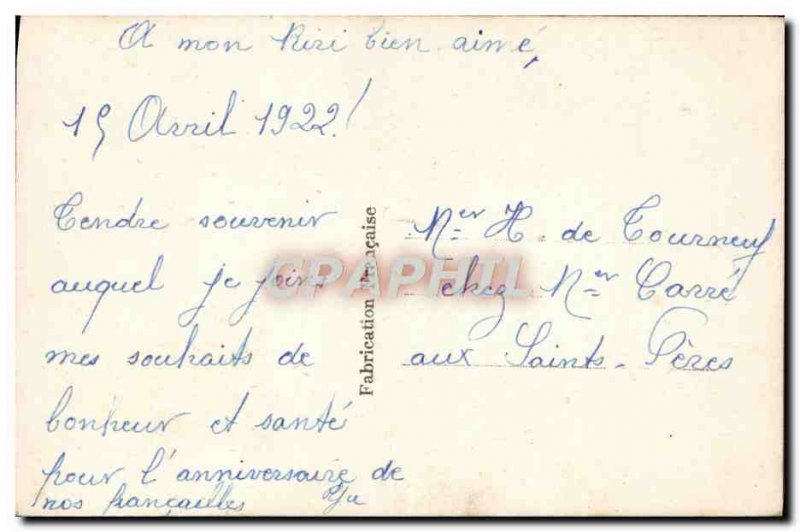 A mon Riri bien aimé,
15 Avril 1922!
Tendre souvenir
auquel je joins
mes souhaits de
bonheur et santé
pour l'anniversaire de
nos fiançailles
Fabrication Française
Mer H. de Tourneuf
chez Mer Carré
aux Saints-Pères
CPAPHIL